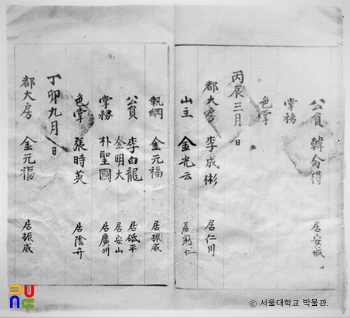 公員 韓俞得 居安城
掌務
色掌
丙辰三月 日
都大房 李成彬 居仁川
山主 金光云 居
執綱 金元福 居振威
公員 李白龍 居砥平
金明大 居安山
掌務 朴聖國 居廣州
色掌 張時英 居陰竹
丁卯九月 日
都大房 金元福 居振威
ⓒ 서울대학교 박물관.